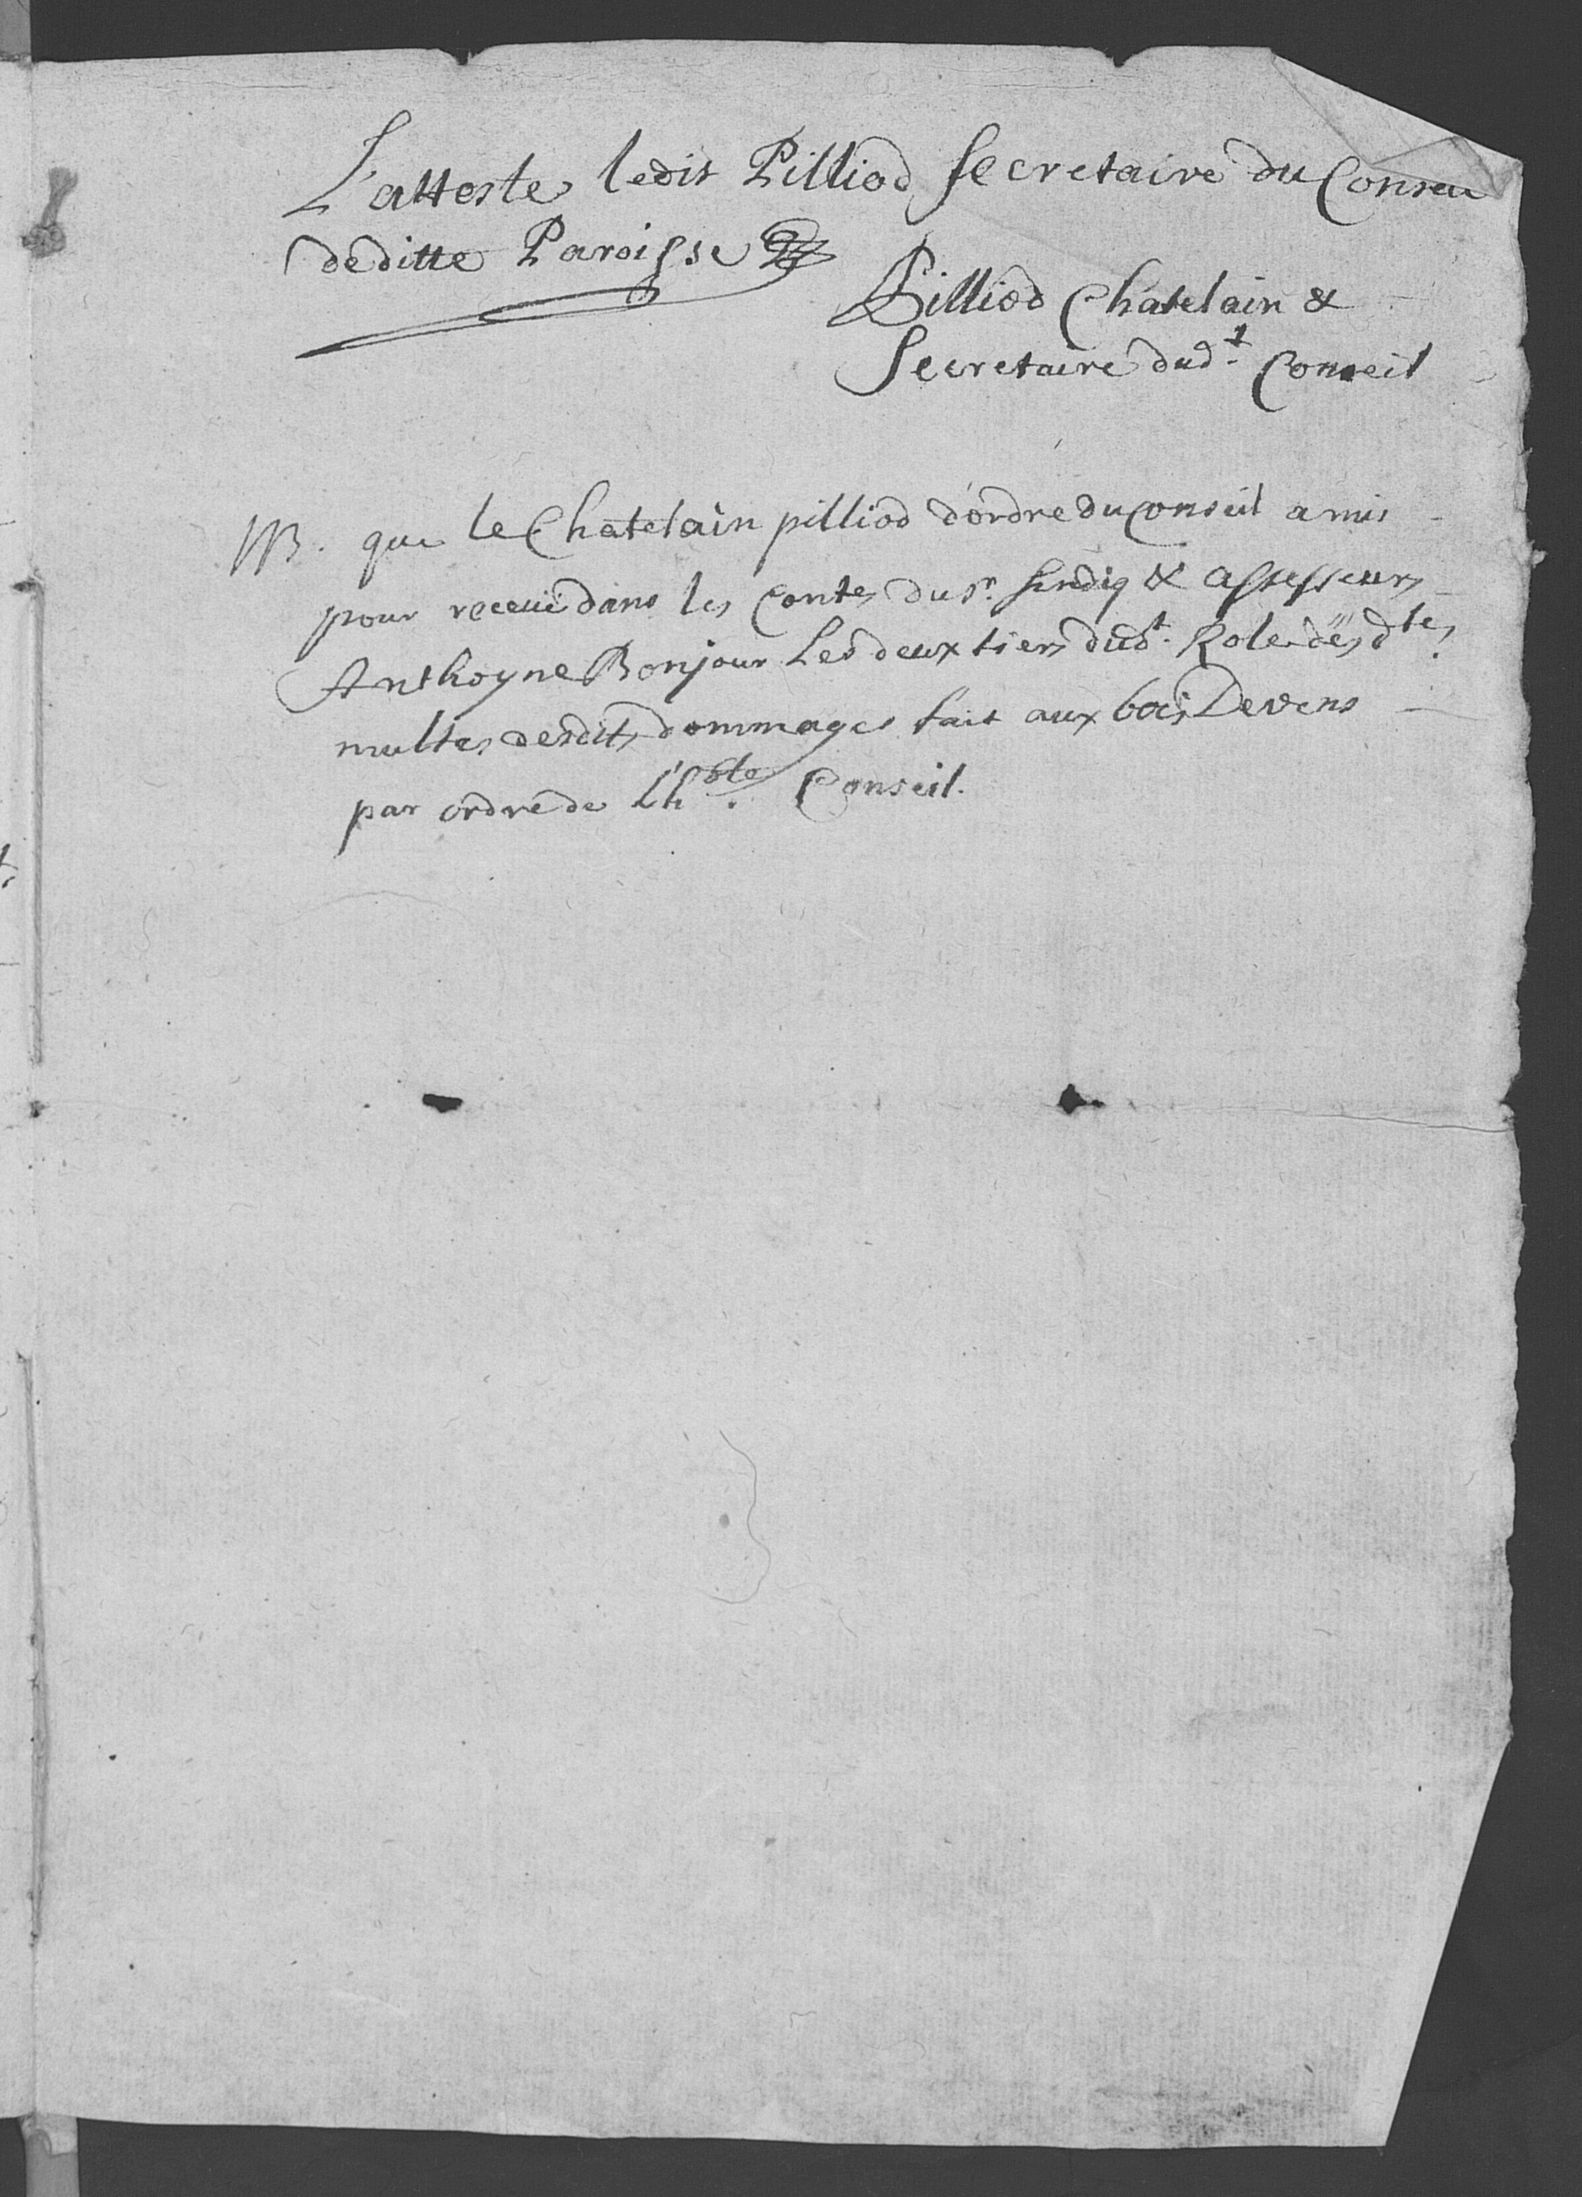 L'atteste ledit Pilliod Secretaire du Conseil
de ditte Paroisse
Pilliod Chatelain &
Secretaire dud.t Conseil
NB. que le Chatelain pilliod d'ordre du Conseil a mis
pour receue dans les Contes du Sr. sindiq & assesseurs
Anthoyne Bonjour Les deux tiers dud.t Role des d.tes
multes desdits dommages fait aux bois Devens
par ordre de L'h.ble Conseil.